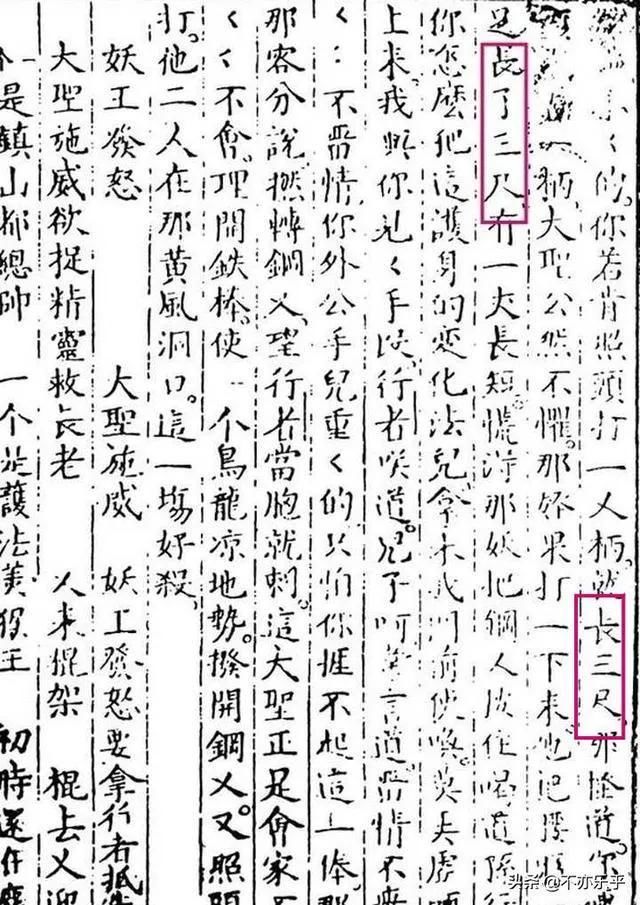 的。你若肯照頭打一义柄。就长三尺。那怪道。你
柄。大聖公然不懼。那妖果打一下来。他把腰
足長了三尺。有一丈長短。慌得那妖把鋼义按住喝道。孫行
你怎麽把這護身的变化法兒。拿来我門前使喚。莫弄虛
上来。我與你見〱手叚。行者咲道。兒子呵。言道。畱情不
〱不畱情。你外公手兒重〱的。只怕你捱不起這一俸。那
那客分說。撚轉鋼义。望行者當胸就刺。這大聖正是會家不
〱〱不會。理開鉄棒。使一个烏龍凉地勢。撥開鋼义。又照頭
打。他二人在那黄風洞口。這一塲好殺。
妖王發怒　大聖施威　妖王發怒要拿行者抵
大聖施威欲捉精靈救長老　义来棍架　棍去义迎
一个是鎮山都總帥　一个是護法美猴王　初時還在塵
头条 @不亦乐乎